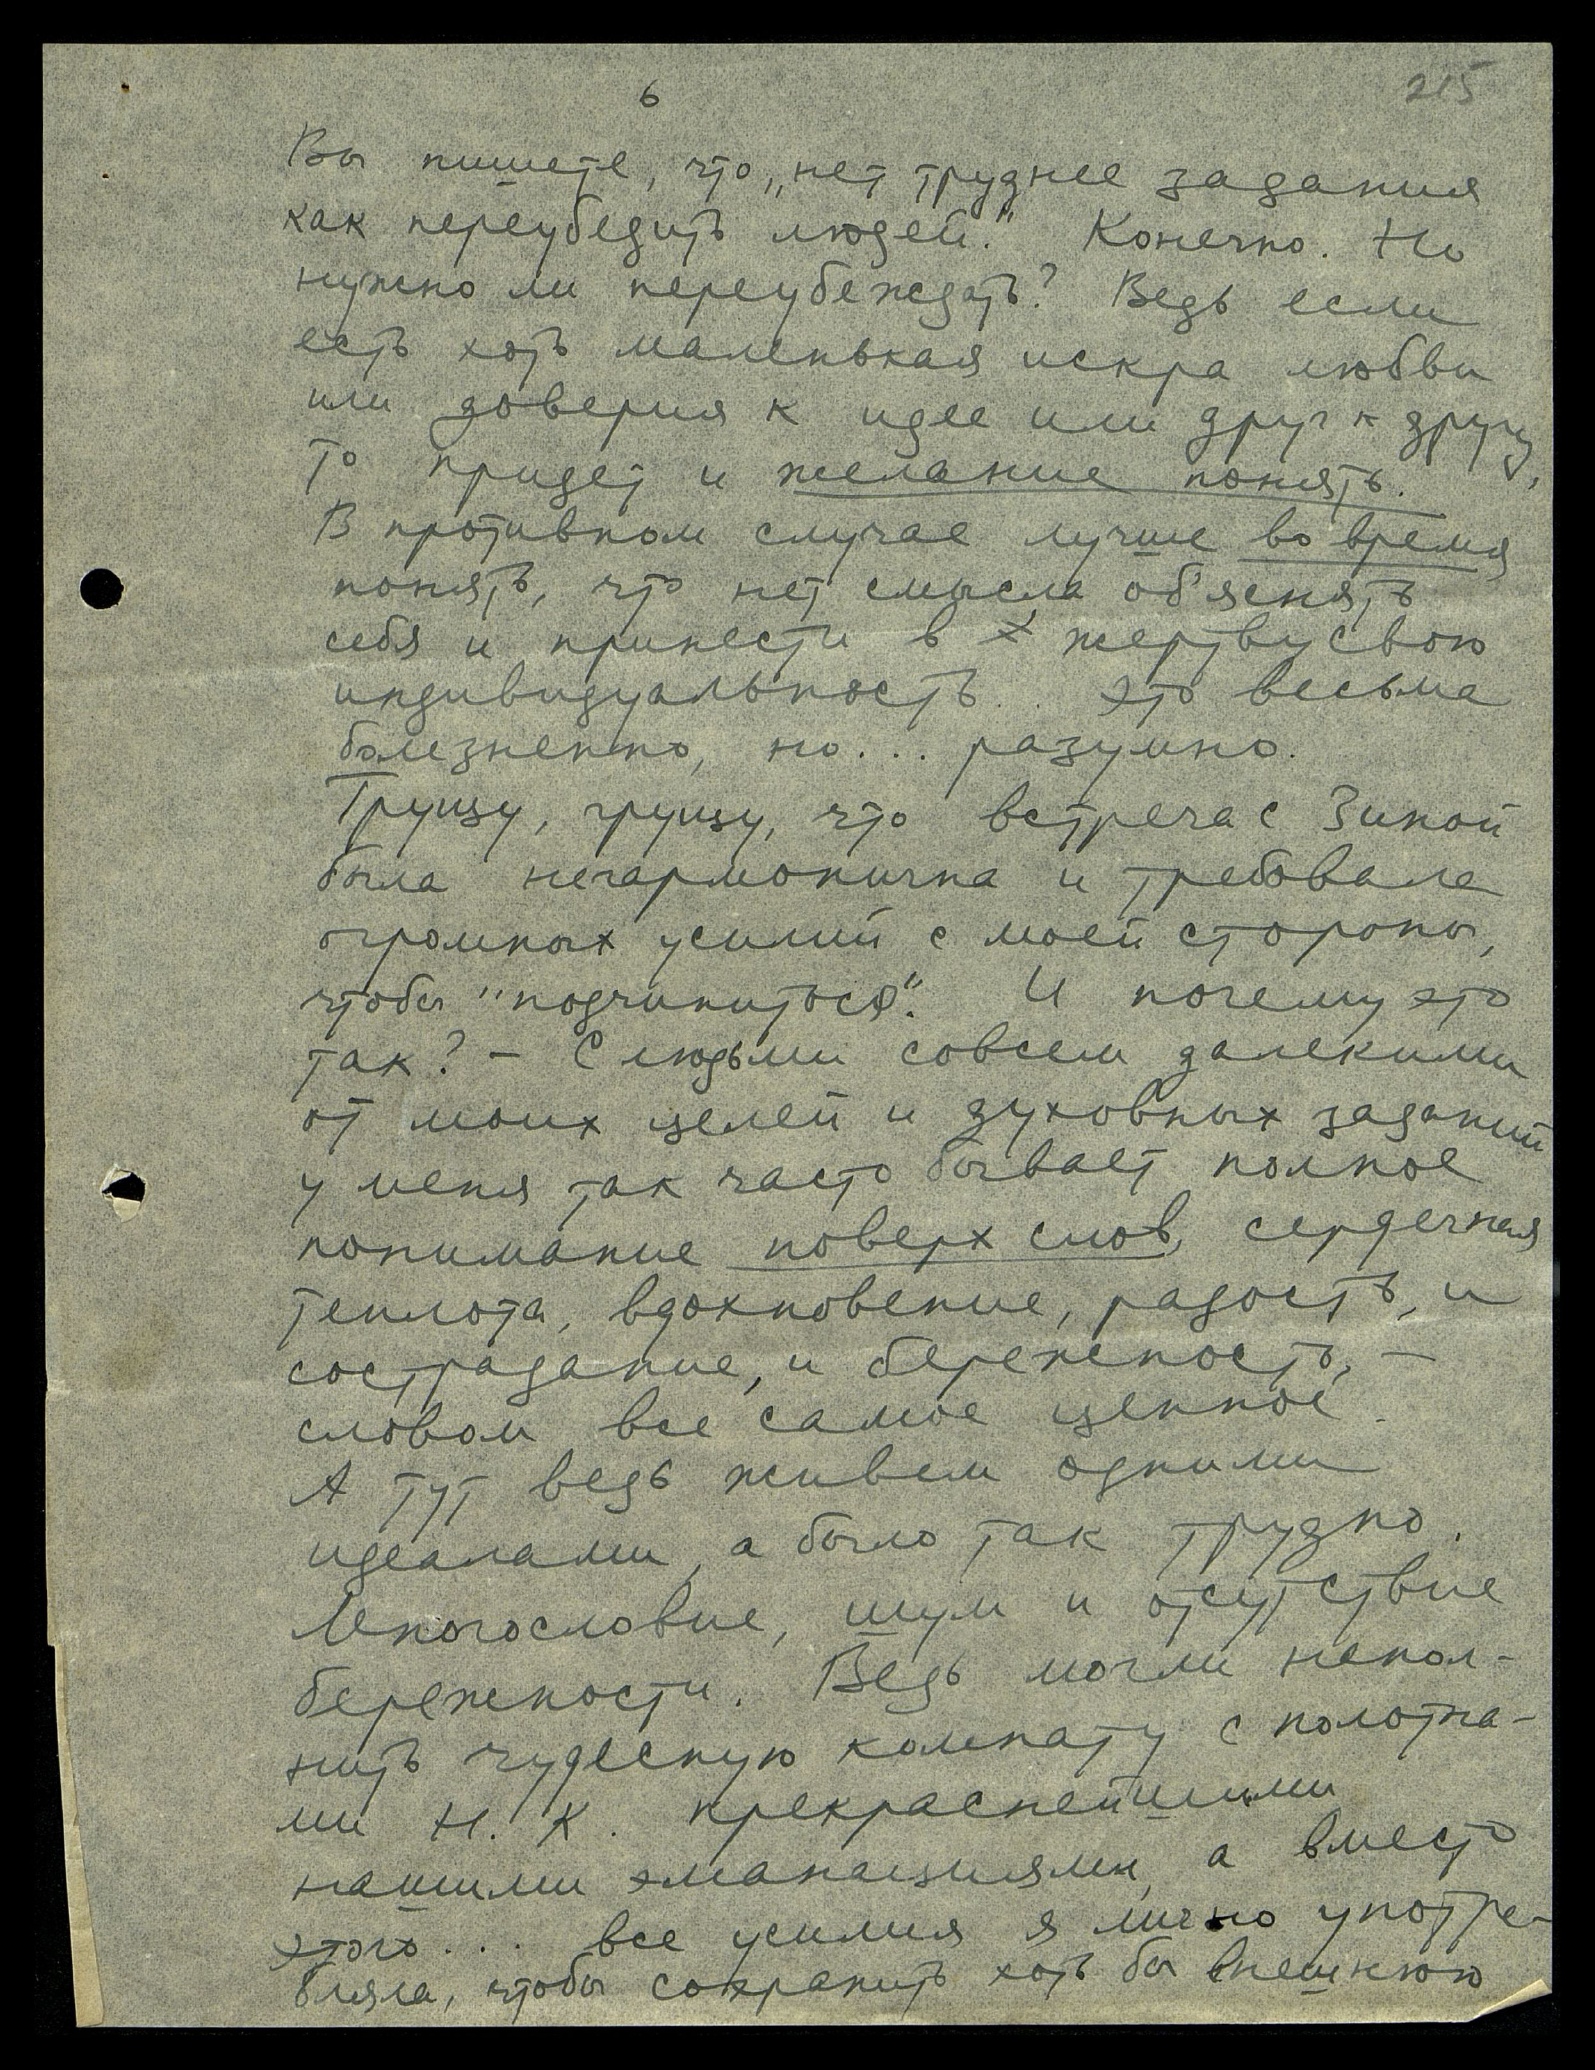 6
215
Вы пишете, что „нет труднее задания
как переубедить людей." Конечно. Но
нужно ли переубеждать? Ведь если
есть хоть маленькая искра любви
или доверия к идее или друг к другу,
то придет и желание понять.
В противном случае лучше во время
понять, что нет смысла об'яснять
себя и принести в жертву свою
индивидуальность.. это весьма
болезненно, но... разумно.
Грущу, грущу, что встреча с Зиной
была негармонична и требовала
огромных усилий с моей стороны,
чтобы "подчиниться". И почему это
так? – С людьми совсем далекими
от моих целей и духовных заданий
у меня так часто бывает полное
понимание поверх слов, сердечная
теплота, вдохновение, радость, и
сострадание, и бережность, –
словом все самое ценное.
А тут ведь живем одними
идеалами, а было так трудно.
Многословие, шум и отсутствие
бережности. Ведь могли напол-
нить чудесную комнату с полотна-
ми Н. К. прекраснейшими
нашими эманациями, а вместо
этого... все усилия я лично употре-
бляла, чтобы сохранить хоть бы внешнюю